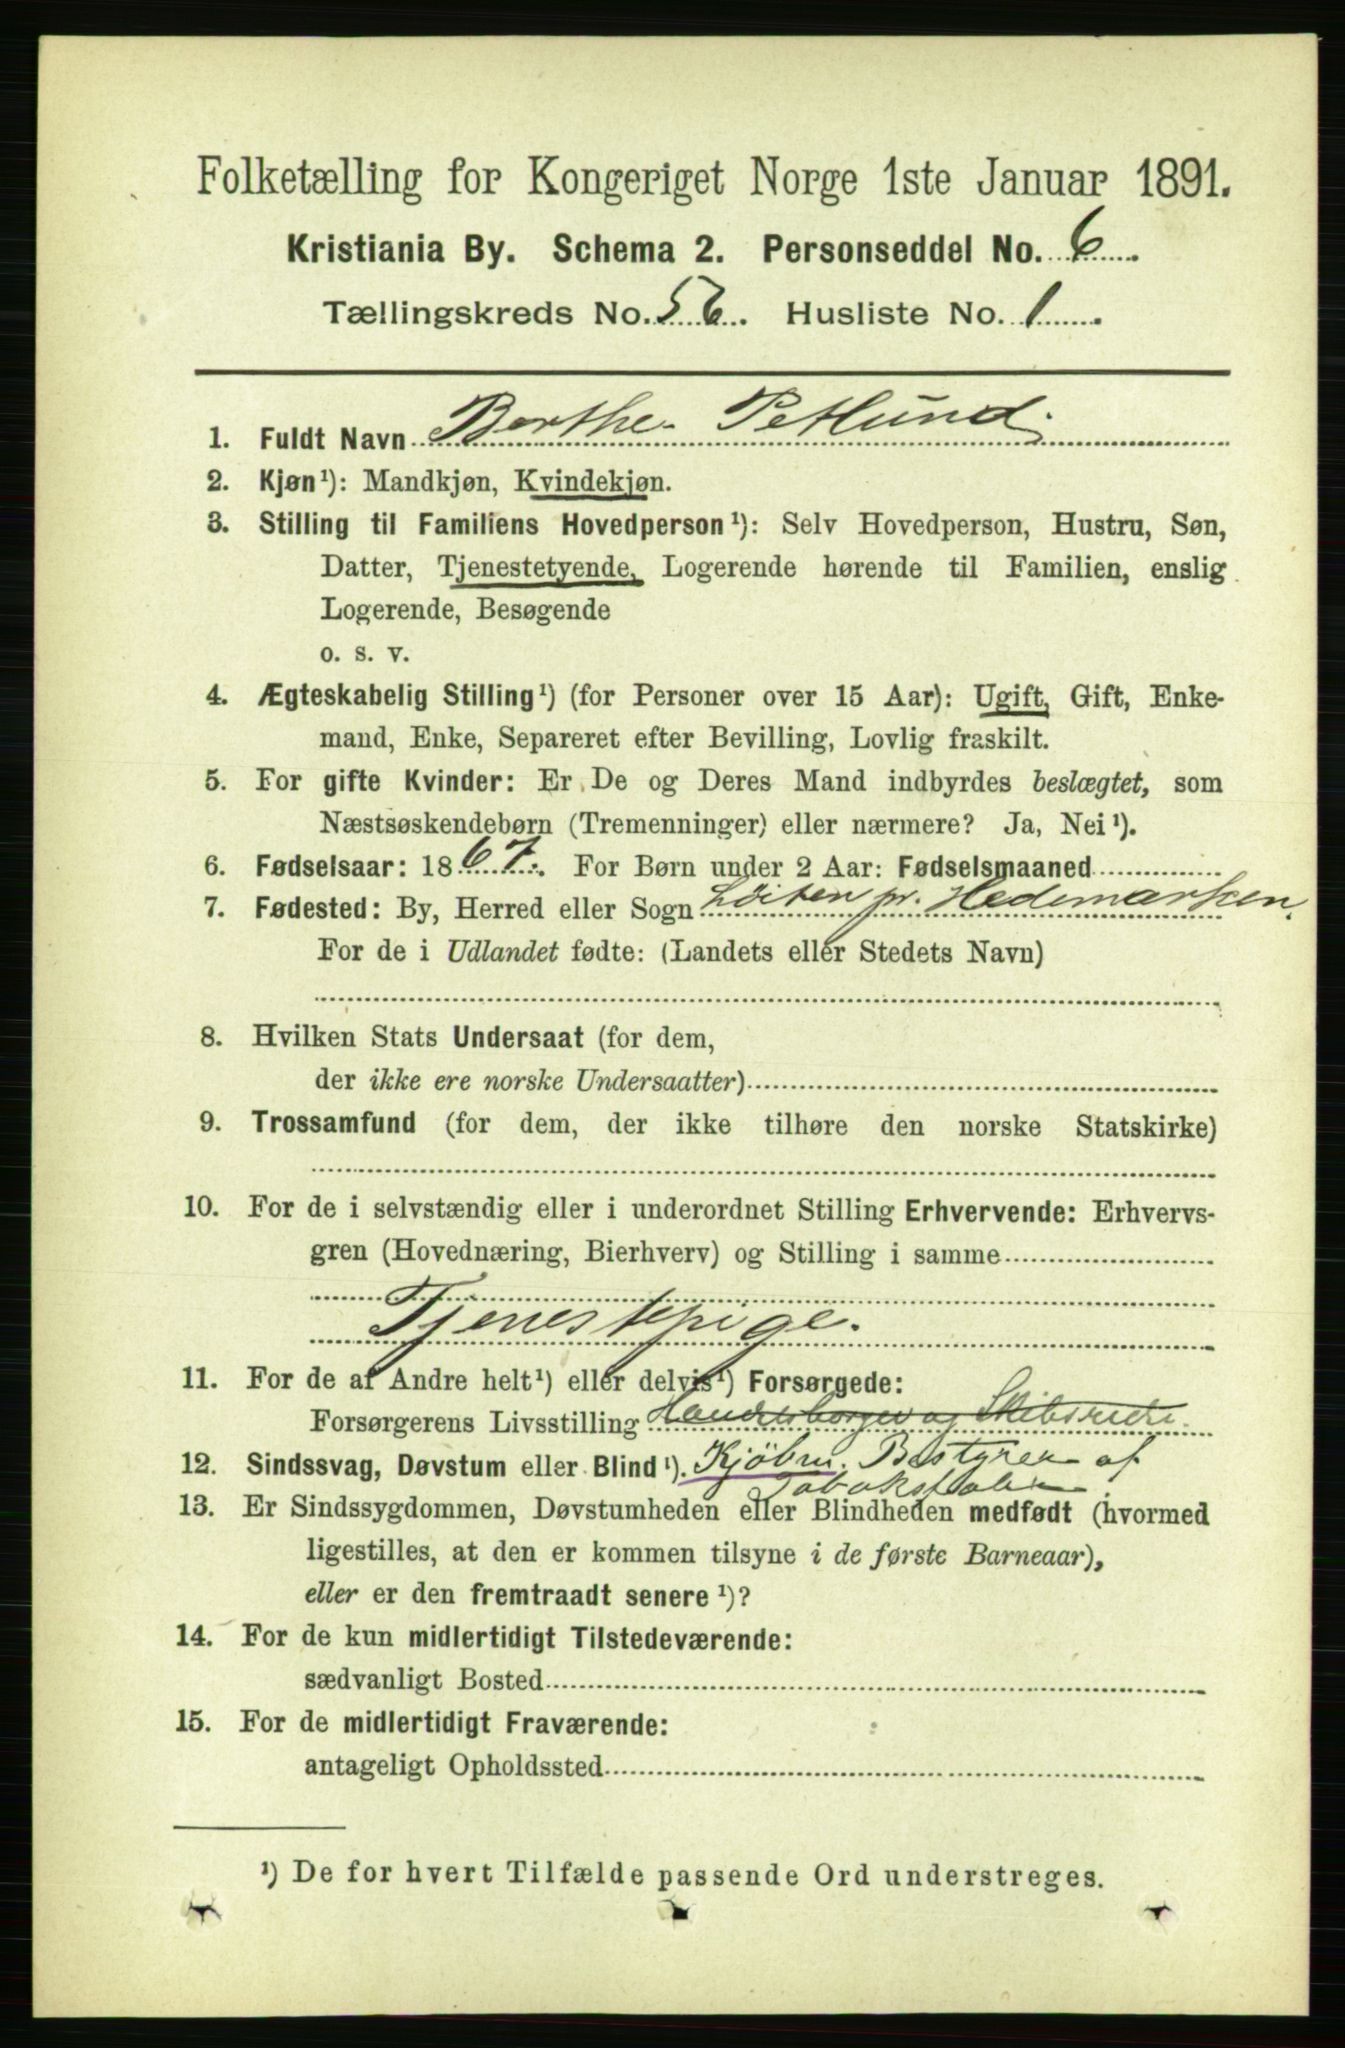 Folketælling for Kongeriget Norge 1ste Januar 1891.
Kristiania By. Schema 2. Personseddel No. 6
Tællingskreds No. 56. Husliste No. 1
1. Fuldt Navn Berthe Petlund
2. Kjøn¹): Mandkjøn, Kvindekjøn.
3. Stilling til Familiens Hovedperson¹): Selv Hovedperson, Hustru, Søn,
Datter, Tjenestetyende, Logerende hørende til Familien, enslig
Logerende, Besøgende
o. s. v.
4. Ægteskabelig Stilling¹) (for Personer over 15 Aar): Ugift, Gift, Enke-
mand, Enke, Separeret efter Bevilling, Lovlig fraskilt.
5. For gifte Kvinder: Er De og Deres Mand indbyrdes beslægtet, som
Næstsøskendebørn (Tremenninger) eller nærmere? Ja, Nei¹).
6. Fødselsaar: 1867. For Børn under 2 Aar: Fødselsmaaned
7. Fødested: By, Herred eller Sogn Löiten pr. Hedemarken.
For de i Udlandet fødte: (Landets eller Stedets Navn)
8. Hvilken Stats Undersaat (for dem,
der ikke ere norske Undersaatter)
9. Trossamfund (for dem, der ikke tilhøre den norske Statskirke)
10. For de i selvstændig eller i underordnet Stilling Erhvervende: Erhvervs-
gren (Hovednæring, Bierhverv) og Stilling i samme
Tjenestepige.
11. For de af Andre helt¹) eller delvis¹) Forsørgede:
Forsørgerens Livsstilling Handelsborger og Skibsreder.
12. Sindssvag, Døvstum eller Blind¹). Kjöbm. Bestyrer af
13. Er Sindssygdommen, Døvstumheden eller Blindheden medfødt (hvormed
ligestilles, at den er kommen tilsyne i de første Barneaar),
eller er den fremtraadt senere¹)?
14. For de kun midlertidigt Tilstedeværende:
sædvanligt Bosted
15. For de midlertidigt Fraværende:
antageligt Opholdssted
¹) De for hvert Tilfælde passende Ord understreges.